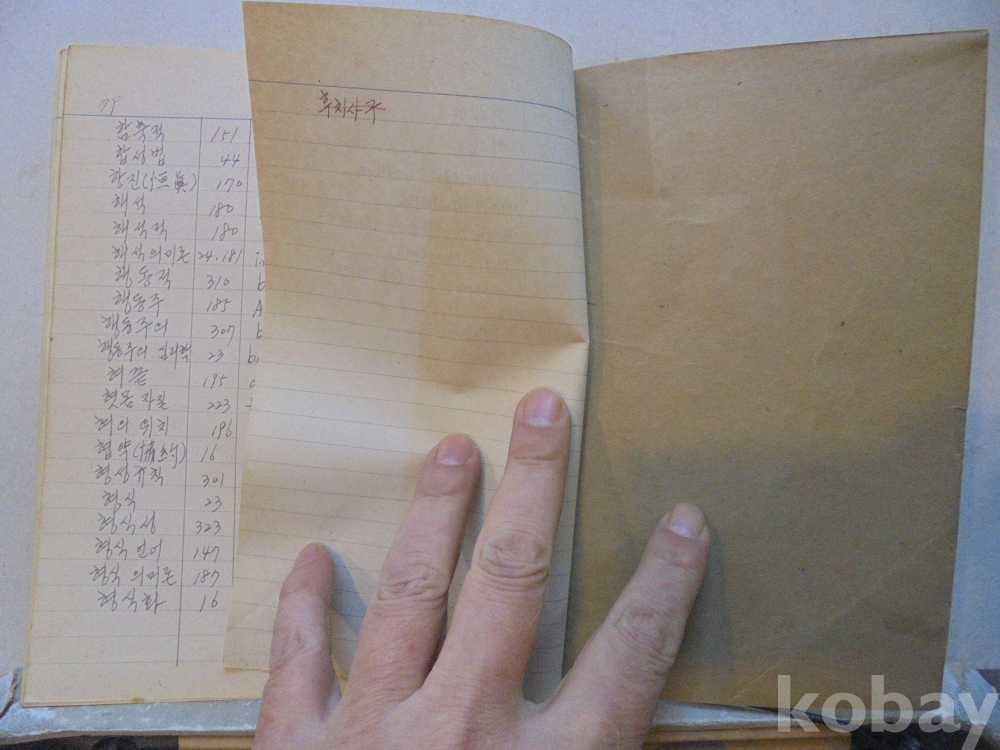 함축적 151
합성법 44
항진(恒眞) 170
해석 180
해석적 180
해석 의미론 24.181
행동적 310
행동주 185
행동주의 307
행동주의 심리학 23
혀끝 195
혓몸 자질 223
혀의 위치 196
협약(協約) 16
형성규칙 301
형식 23
형식성 323
형식 언어 147
형식 의미론 187
형식화 16
후치사
kobay